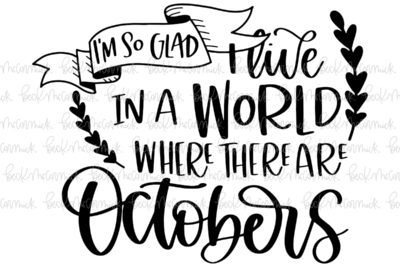 I'M SO GLAD
I live
IN A WORLD
WHERE THERE ARE
Octobers